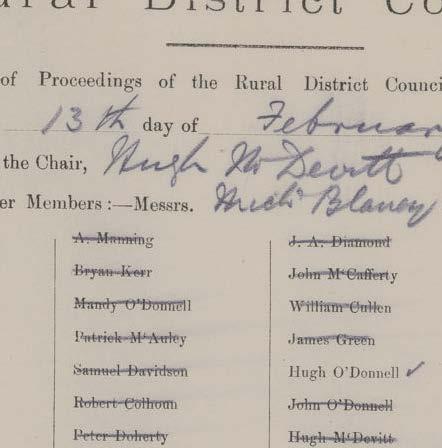 ural District Co
of Proceedings of the Rural District Counci
13th day of Februar
the Chair, Hugh McDevitt
er Members :—Messrs. Michl Blaney
A. Manning
Bryan Kerr
Mandy O'Donnell
Patrick M'Auley
Samuel Davidson
Robert Colhoun
Peter Doherty
J. A. Diamond
John M'Cafferty
William Cullen
James Green
Hugh O'Donnell ✓
John O'Donnell
Hugh M'Devitt